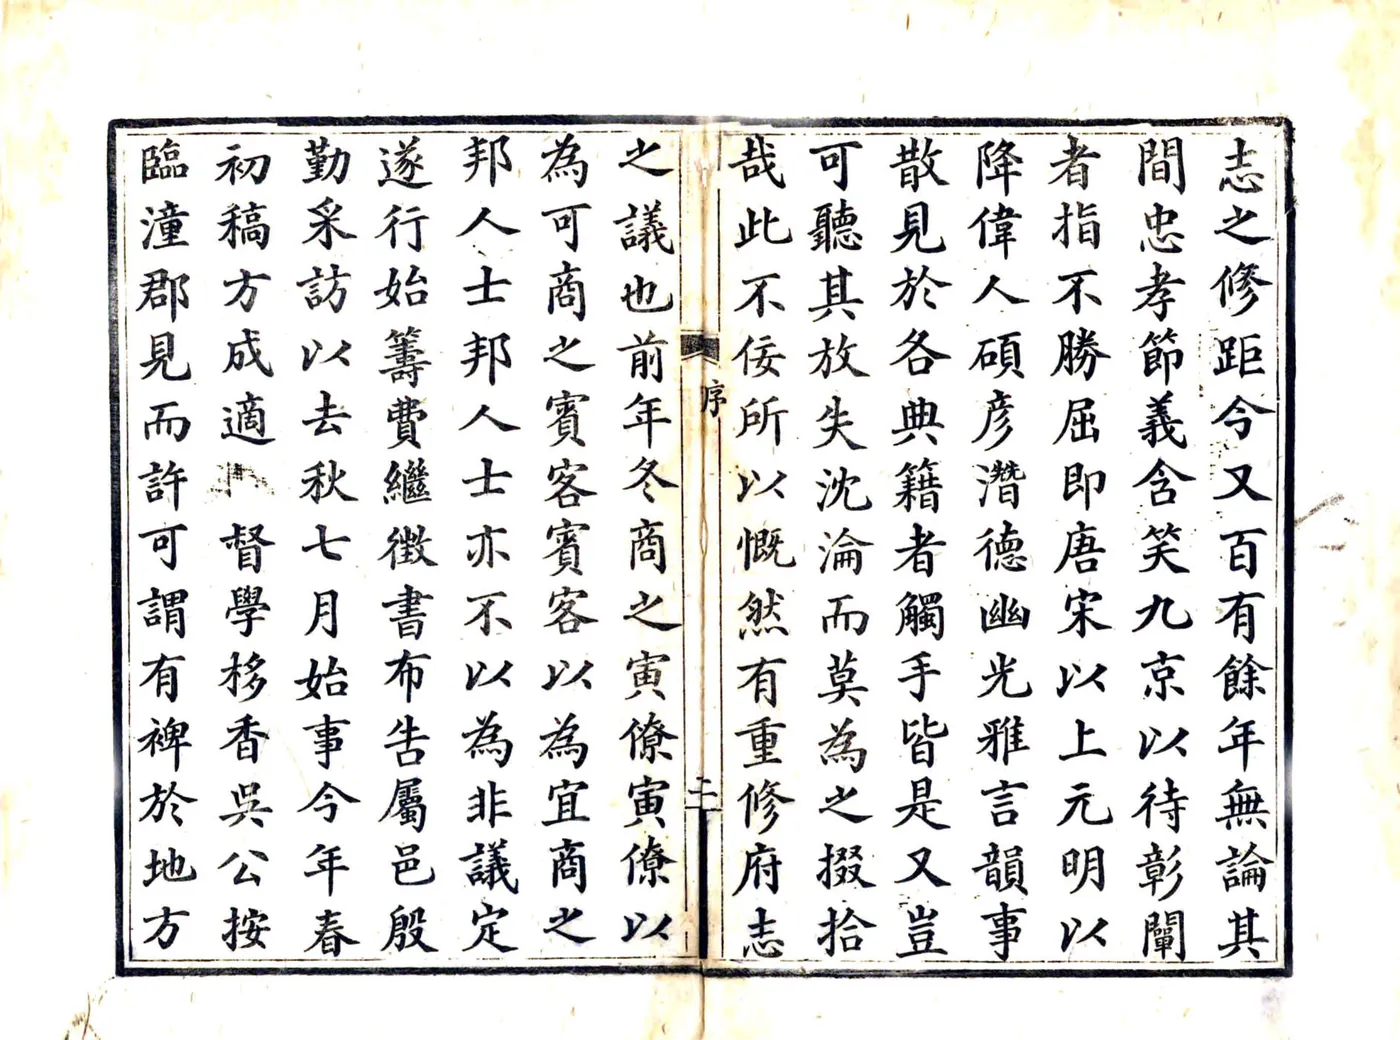 志之修距今又百有餘年無論其
間忠孝節義含笑九京以待彰闡
者指不勝屈即唐宋以上元明以
降偉人碩彦潛德幽光雅言韻事
散見於各典籍者觸手皆是又豈
可聽其放失沈淪而莫為之掇拾
哉此不佞所以慨然有重修府志
序
二
之議也前年冬商之寅僚寅僚以
為可商之賓客賓客以為宜商之
邦人士邦人士亦不以為非議定
遂行始籌費繼徵書布告屬邑殷
勤采訪以去秋七月始事今年春
初稿方成適 督學栘香吳公按
臨潼郡見而許可謂有裨於地方